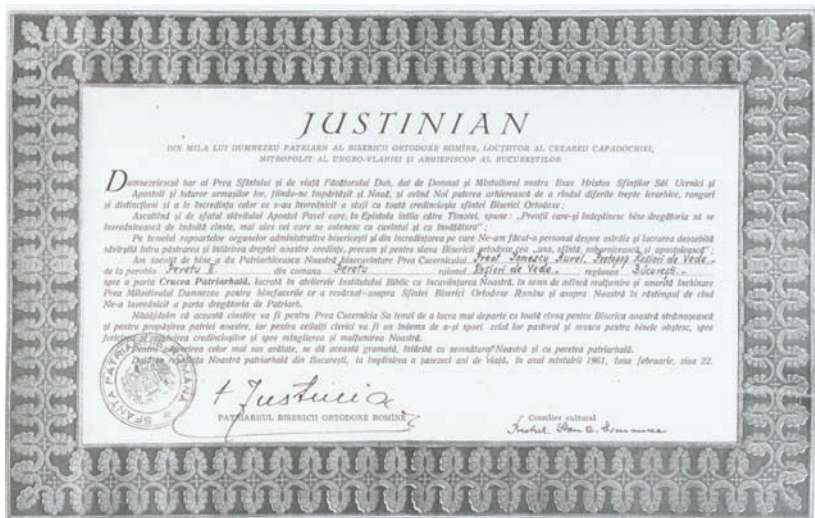 JUSTINIAN
DIN MILA LUI DUMNEZEU PATRIARH AL BISERICII ORTODOXE ROMÎNE, LOCȚIITOR AL CEZAREII CAPADOCHIEI,
MITROPOLIT AL UNGRO-VLAHIEI ȘI ARHIEPISCOP AL BUCUREȘTILOR
Dumnezeiescul har al Prea Sfîntului și de viață Făcătorului Duh, dat de Domnul și Mîntuitorul nostru Iisus Hristos Sfinților Săi Ucenici și
Apostoli și tuturor urmașilor lor, fiindu-ne împărtășit și Nouă, și avînd Noi putere arhierească de a rîndui diferite trepte ierarhice, ranguri
și distincțiuni și a le încredința celor ce s-au învrednicit a sluji cu toată credincioșia sfintei Biserici Ortodoxe;
Ascultînd și de sfatul slăvitului Apostol Pavel care, în Epistola întîia către Timotei, spune: „Preoții care-și îndeplinesc bine dregătoria să se
învrednicească de îndoită cinste, mai ales cei care se ostenesc cu cuvîntul și cu învățătura”;
Pe temeiul rapoartelor organelor administrative bisericești și din încredințarea pe care Ne-am făcut-o personal despre osîrdia și lucrarea deosebită
săvîrșită întru păstrarea și întărirea dreptei noastre credințe, precum și pentru slava Bisericii ortodoxe cea „una, sfîntă, sobornicească și apostolească”;
Am socotit de bine a da Patriarhicească Noastră binecuvîntare Prea Cucernicului Preot Ionescu Aurel, Protopop Roșiori de Vede -
de la parohia Peretu II. din comuna Peretu raionul Roșiori de Vede.- regiunea București.-
spre a purta Crucea Patriarhală, lucrată în atelierele Institutului Biblic cu încuviințarea Noastră, în semn de adîncă mulțumire și smerită închinare
Prea Milostivului Dumnezeu pentru binefacerile ce a revărsat-asupra Sfintei Biserici Ortodoxe Romîne și asupra Noastră în răstimpul de cînd
Ne-a învrednicit a purta dregătoria de Patriarh.
Nădăjduim că această cinstire va fi pentru Prea Cucernicia Sa temei de a lucra mai departe cu toată rîvna pentru Biserica noastră strămoșească
și pentru propășirea patriei noastre, iar pentru ceilalți clerici va fi un îndemn de a-și spori zelul lor pastoral și munca pentru binele obștesc, spre
credincioșilor și spre mîngîierea și mulțumirea Noastră.
Pentru celor mai sus arătate, se dă această gramată, întărită cu semnătura Noastră și cu pecetea patriarhală.
Noastră patriarhală din București, la împlinirea a șaizeci ani de viață, în anul mîntuirii 1961, luna februarie, ziua 22.
SFÂNTA PATRIARHIE ROMÂNĂ
+ Justinian
PATRIARHUL BISERICII ORTODOXE ROMÎNE
Consilier cultural